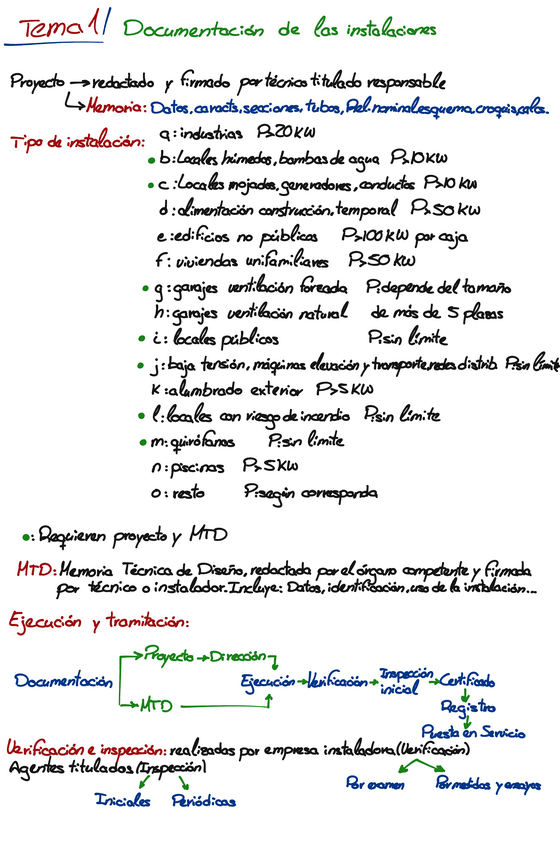 Tema 1/ Documentación de las instalaciones
Proyecto → redactado y firmado por técnico titulado responsable
↳ Memoria: Datos, caracts, secciones, tubos, Rel. nominal, esquema, croquis, calcs.
Tipo de instalación: a: industrias P>20KW
• b: Locales húmedos, bombas de agua P>10KW
• c: Locales mojados, generadores, conductos P>10 KW
d: alimentación construcción, temporal P>50KW
e: edificios no públicos P>100KW por caja
f: viviendas unifamiliares P>50KW
• g: garajes ventilación forzada P: depende del tamaño
h: garajes ventilación natural de más de 5 plazas
• i: locales públicos P: sin límite
• j: baja tensión, máquinas elevación y transporte, redes distrib P: sin límite
K: alumbrado exterior P>5KW
• l: locales con riesgo de incendio P: sin límite
• m: quirófanos P: sin límite
n: piscinas P>5KW
o: resto P: según corresponda
•: Requieren proyecto y MTD
MTD: Memoria Técnica de Diseño, redactada por el órgano competente y firmada
por técnico o instalador. Incluye: Datos, identificación, uso de la instalación...
Ejecución y tramitación:
Documentación → Proyecto → Dirección
→ MTD
Ejecución → Verificación → Inspección inicial → Certificado
Registro
Puesta en Servicio
Verificación e inspección: realizadas por empresa instaladora (Verificación)
Agentes titulados (Inspección)
Iniciales Periódicas
Por examen Por metidas y ensayos